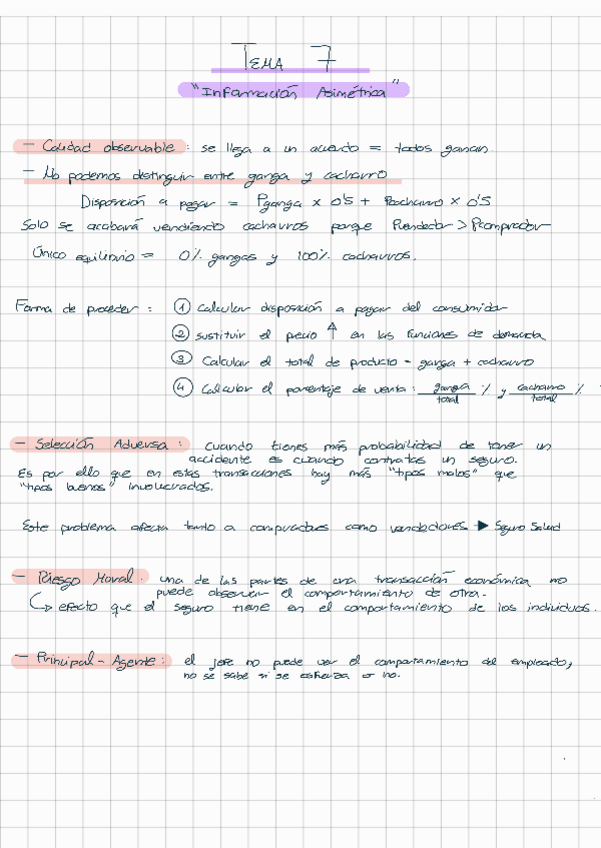 TEMA 7
"Información Asimétrica"
- Calidad observable: se llega a un acuerdo = todos ganan
- No podemos distinguir entre ganga y cacharro
Disposición a pagar = Pganga x 0'5 + Pcacharro x 0'5
Solo se acabará vendiendo cacharros porque Pvendedor > Pcomprador
Único equilibrio = 0% gangas y 100% cacharros.
Forma de proceder: ① Calcular disposición a pagar del consumidor
② sustituir el precio ↑ en las funciones de demanda
③ Calcular el total de producto - ganga + cacharro
④ Calcular el porcentaje de venta: ganga/total % y cacharro/total %
- Selección Adversa: cuando tienes más probabilidad de tener un
accidente es cuando contratas un seguro.
Es por ello que en estas transacciones hay más "tipos malos" que
"tipos buenos" involucrados.
Este problema afecta tanto a compradores como vendedores ► Seguro Salud
- Riesgo Moral: una de las partes de una transacción económica no
puede observar el comportamiento de otra.
↳ efecto que el seguro tiene en el comportamiento de los individuos.
- Principal - Agente: el jefe no puede ver el comportamiento del empleado,
no se sabe si se esfuerza o no.